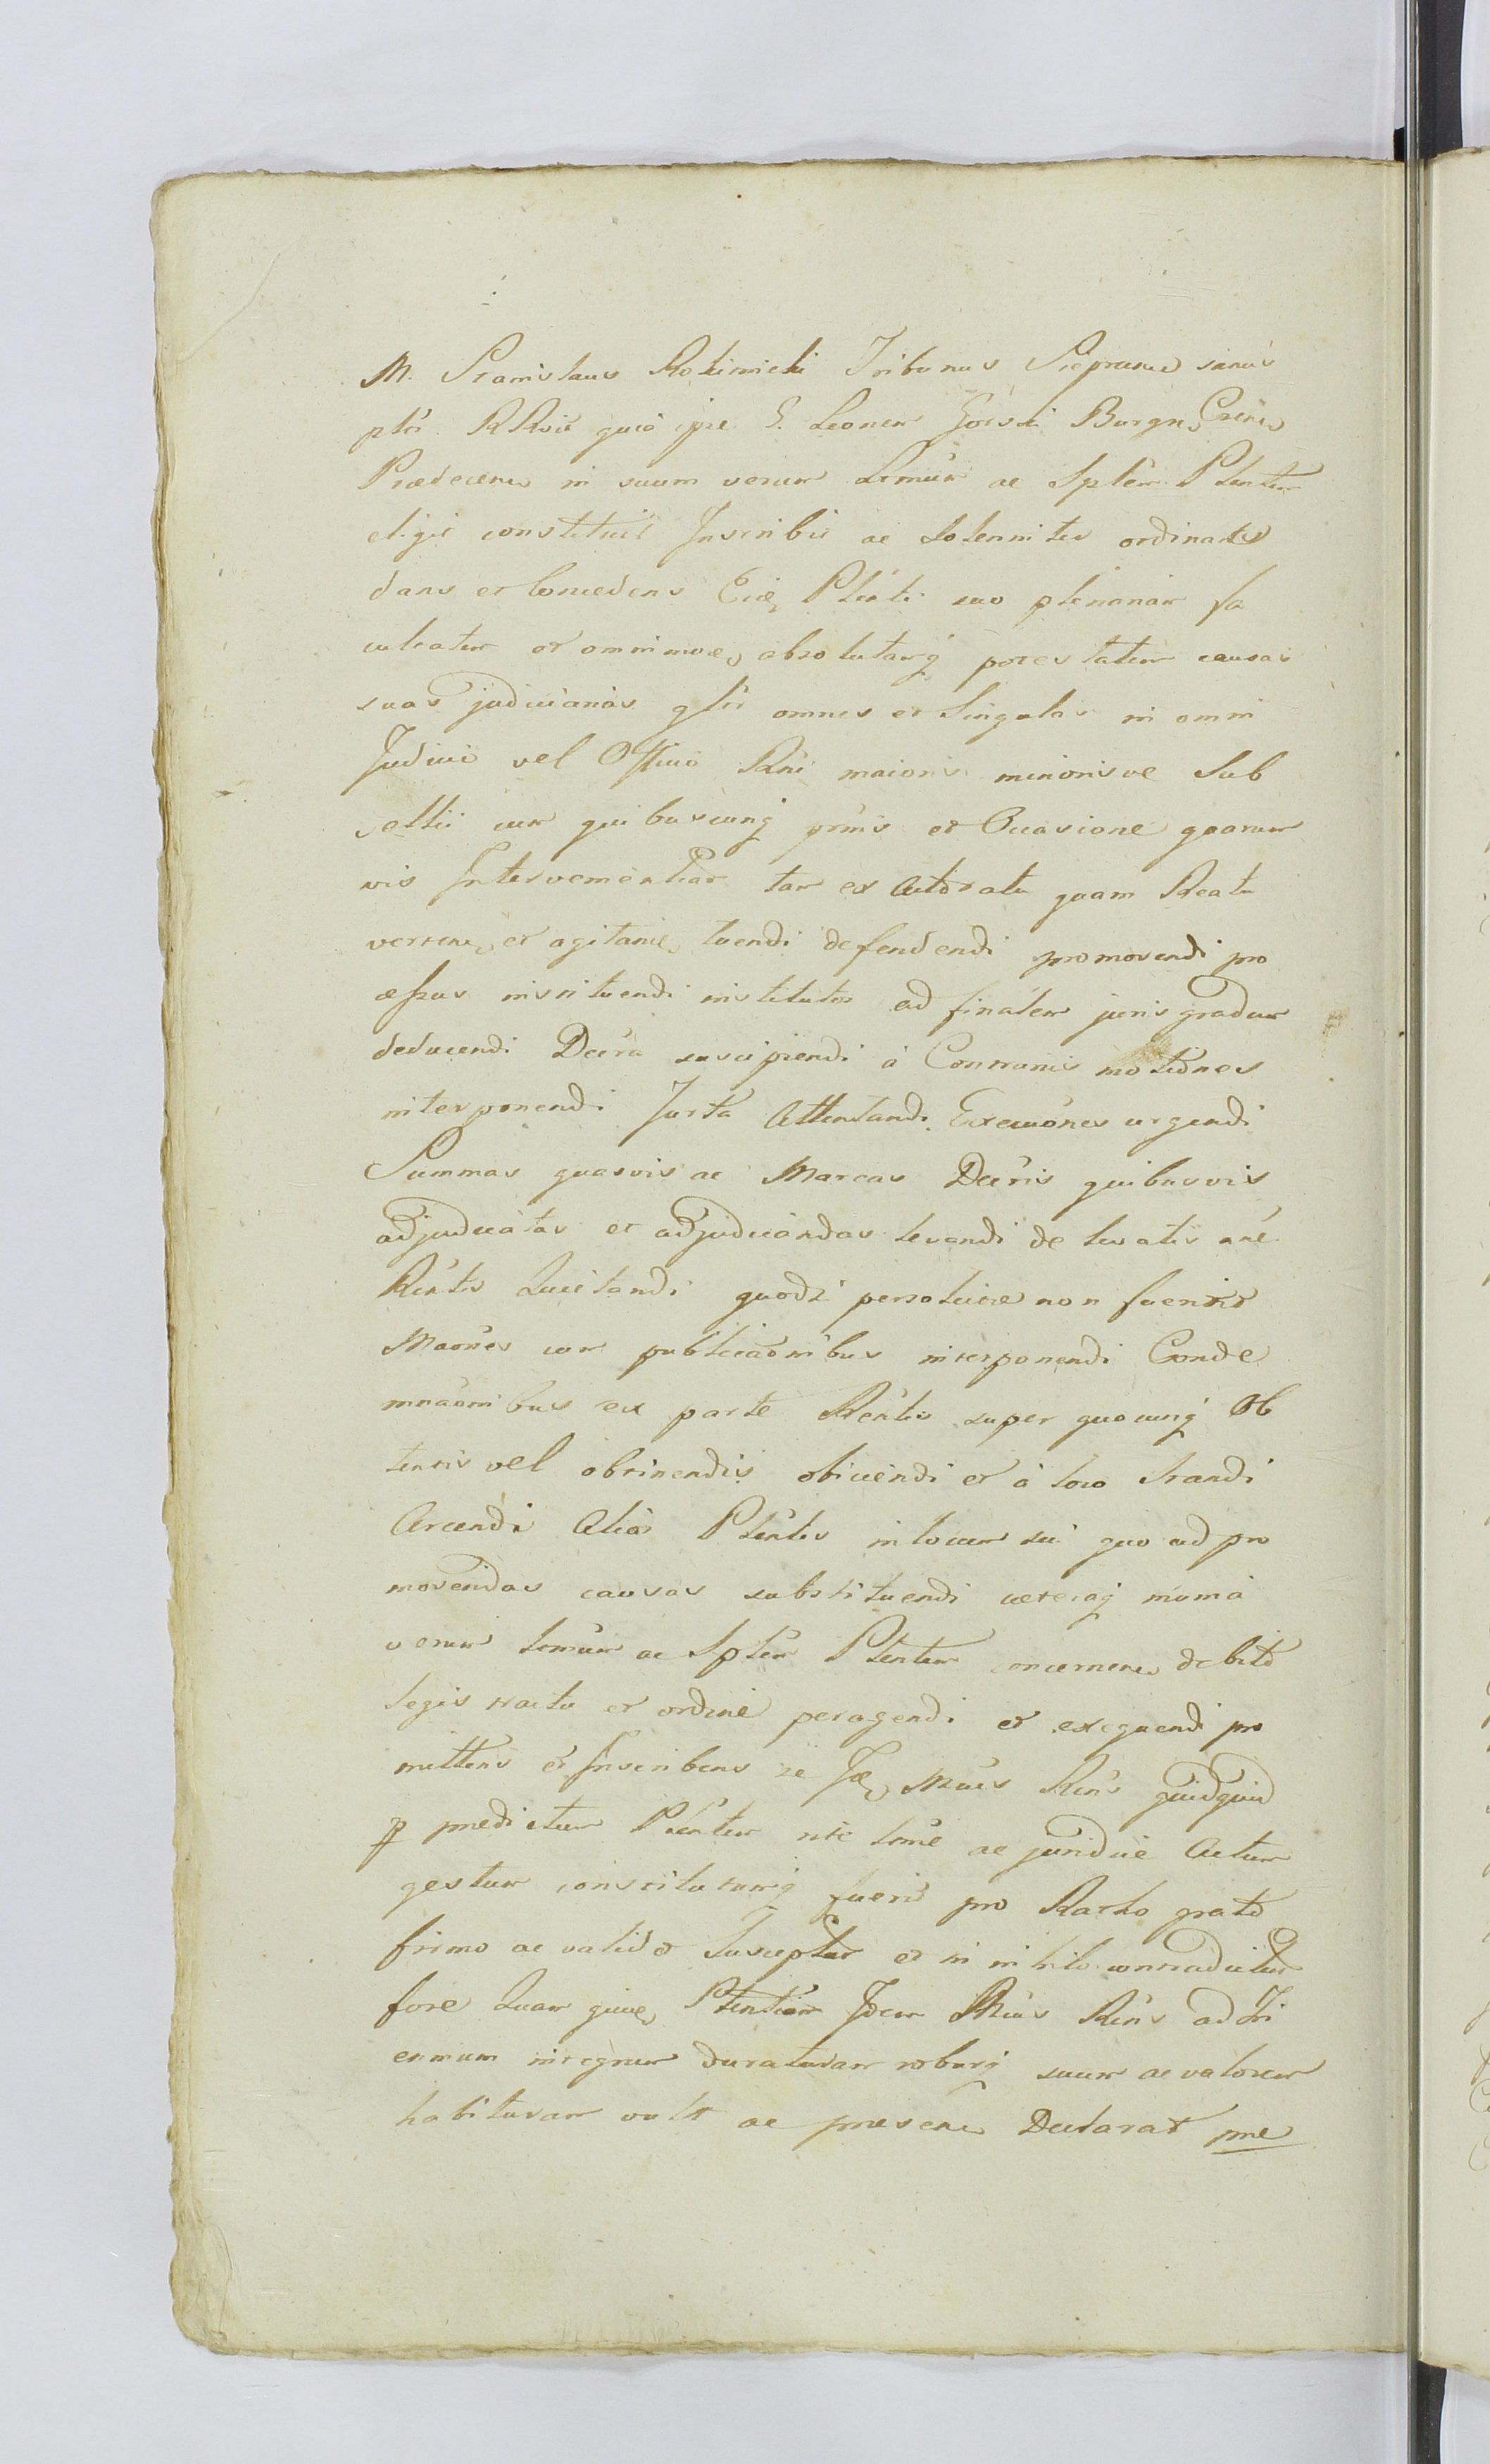 M. Stanislaus Rokitnicki Tribunus Sieprcens sanus
pltr RRvit quia ipse G. Leonem Gorski Burgn Crens
Praedecene in suum verum Lrmum ac Splem Plentem
eligit constituit Inscribit ac Solenniter ordinat
dans et Concedens Eid Plenti suo plenariam fa
cultatem et omnimod absolutamq potestatem causas
suas judiciarias gltr omnes et Singulas in omni
Judicio vel Officio Rni maioris minorisve Sub
sellii cum quibuscunq prnis et Occasione quarum
vis Interveniential tam ex Actoratu quam Reatu
verten et agitand tuendi defendendi promovendi pro
cessus instituendi institutos ad finalem juris gradum
deducendi Decra suscipiendi à Contrariis motiones
interponendi Jurta Attentandi Execuones urgendi
Summas quasvis ac Marcas Decris quibusvis
adjudicatas et adjudicandas levandi de levatis nne
Rentis Quietandi quodsi persolutae non fuerint
Maones cum publicaonibus interponendi Conde
mnaonibus ex parte Rentis super quocunq Ob
tentis vel obtinendis obiiciendi et à loco Standi
Arcendi Alios Plentes in locum sui quo ad pro
movendas causas substituendi caeteraq munia
verum Lrmum ac Splem Plentem concernen debito
legis tractu et ordine peragendi et exequendi pro
mittens et Inscribens se Id Mcus Rens quidquid
p predictum Plentem rite lrme ac juridice Actum
gestum constitutumq fuerit pro Ratho grato
firmo ac valido Susceptur et in nihilo contradictur
fore Quam quid Plentiam Idem Mcus Rens ad Tri
ennium integrum duraturam roburq suum ac valorem
habituram vult ac presen Declarat pne